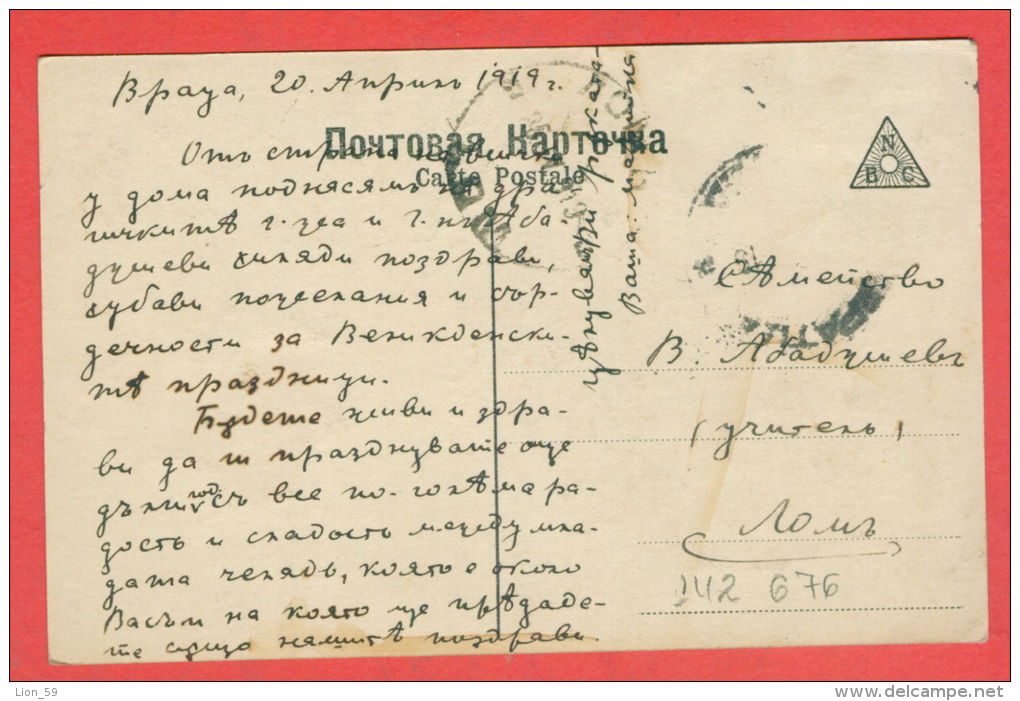 Враца, 20. Априлъ 1919 г.
Почтовая Карточка
Carte Postale
N
B C
Отъ страна на всички
у дома поднасямъ на дра-
гичкитѣ г. ца и г. нъ Аба-
душеви хиляди поздрави,
хубави пожелания и сър-
дечности за Великденски-
тѣ празници.
Бѫдете живи и здра-
ви да ги празднувате още
дълги год. съ все по-голѣма ра-
дость и сладость между мла-
дата челядь, която е около
Васъ и на която ще прѣдаде-
те също нашитѣ поздрави.
цѣлувайки рѫката
Ваша
Сѣмейство
В. Абадушевъ
(учитель)
Ломъ
142 676
Lion_59
http://www.delcampe.net